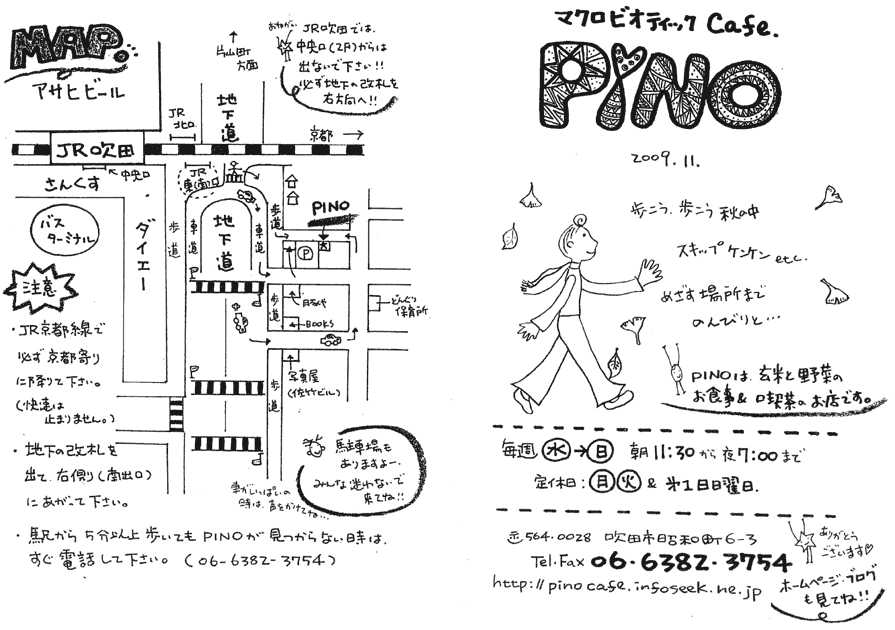 MAP.
アサヒビール
片山町
方面
おねがい
JR吹田では、
中央口(2F)からは
出ないで下さい!!
必ず地下の改札を
右方向へ!!
地下道
JR
北口
京都
JR吹田
中央口
さんくす
JR
東(南)口
バス
ターミナル
ダイエー
歩道
車道
地下道
車道
歩道
PINO
P
注意
歩道
BOOKS
どんぐり
保育所
写真屋
(佐竹ビル)
歩道
・JR京都線で
必ず京都寄り
に降りて下さい。
(快速は
止まりません。)
・地下の改札を
出て、右側(南出口)
にあがって下さい。
駐車場も
ありますよー。
みんな迷わないで
来てね!!
車がいっぱいの
時は、声をかけてね…
・駅から5分以上歩いてもPINOが見つからない時は、
すぐ電話して下さい。(06-6382-3754)
マクロビオティック Cafe.
PiNO
2009.11.
歩こう、歩こう 秋の中
スキップ ケンケン etc.
めざす場所まで
のんびりと…
PINOは、玄米と野菜の
お食事&喫茶のお店です。
毎週 水→日 朝11:30から夜7:00まで
定休日:月火 & 第1日曜日.
〒564-0028 吹田市昭和町6-3
Tel.Fax 06・6382・3754
http://pinocafe.infoseek.ne.jp
ありがとう
ございます♡
ホームページ・ブログ
も見てね!!